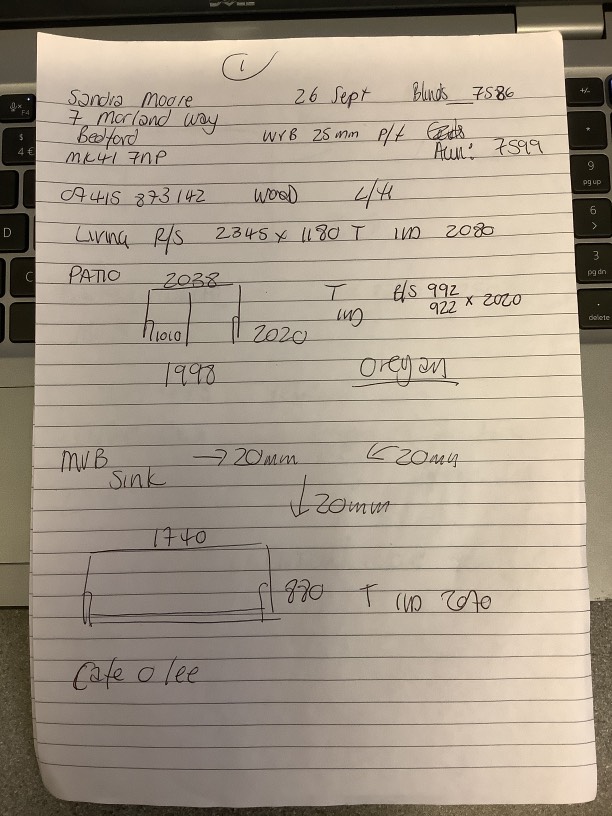 1
Sandra Moore 26 Sept Blinds 7586
7 Morland way
Bedford WVB 25mm P/t
MK41 7NP Acun: 7599
07415 873142 WOOD L/H
Living R/S 2345 x 1180 T IND 2080
PATIO 2038
T R/S 992 x 2020
IND 922
1010 2020
1998 Oregon
MVB → 20mm ← 20mm
Sink
↓ 20mm
1740
880 T IND 2070
Cafe o lee